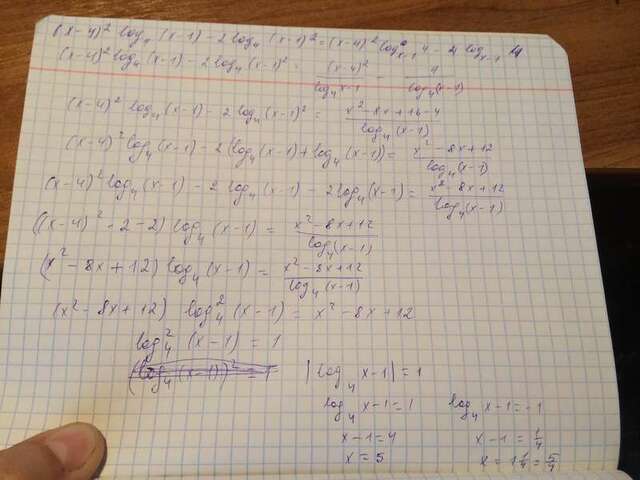 (x-4)² log₄ (x-1) - 2 log₄ (x-1)² = (x-4)² logₓ₋₁ 4 - 2 logₓ₋₁
(x-4)² log₄ (x-1) - 2 log₄ (x-1)² = (x-4)²/log₄ x-1 - 4/log₄(x-1)
(x-4)² log₄ (x-1) - 2 log₄ (x-1)² = x²-8x+16-4/log₄(x-1)
(x-4)² log₄ (x-1) - 2 (log₄ (x-1) + log₄ (x-1)) = x²-8x+12/log₄(x-1)
(x-4)² log₄ (x-1) - 2 log₄ (x-1) - 2 log₄ (x-1) = x²-8x+12/log₄(x-1)
((x-4)² - 2 - 2) log₄ (x-1) = x²-8x+12/log₄(x-1)
(x² - 8x + 12) log₄ (x-1) = x²-8x+12/log₄(x-1)
(x² - 8x + 12) log₄² (x-1) = x² - 8x + 12
log₄² (x-1) = 1
(log₄ (x-1))² = 1
|log₄ x-1| = 1
log₄ x-1 = 1 log₄ x-1 = -1
x-1 = 4 x-1 = 1/4
x = 5 x = 1 1/4 = 5/4